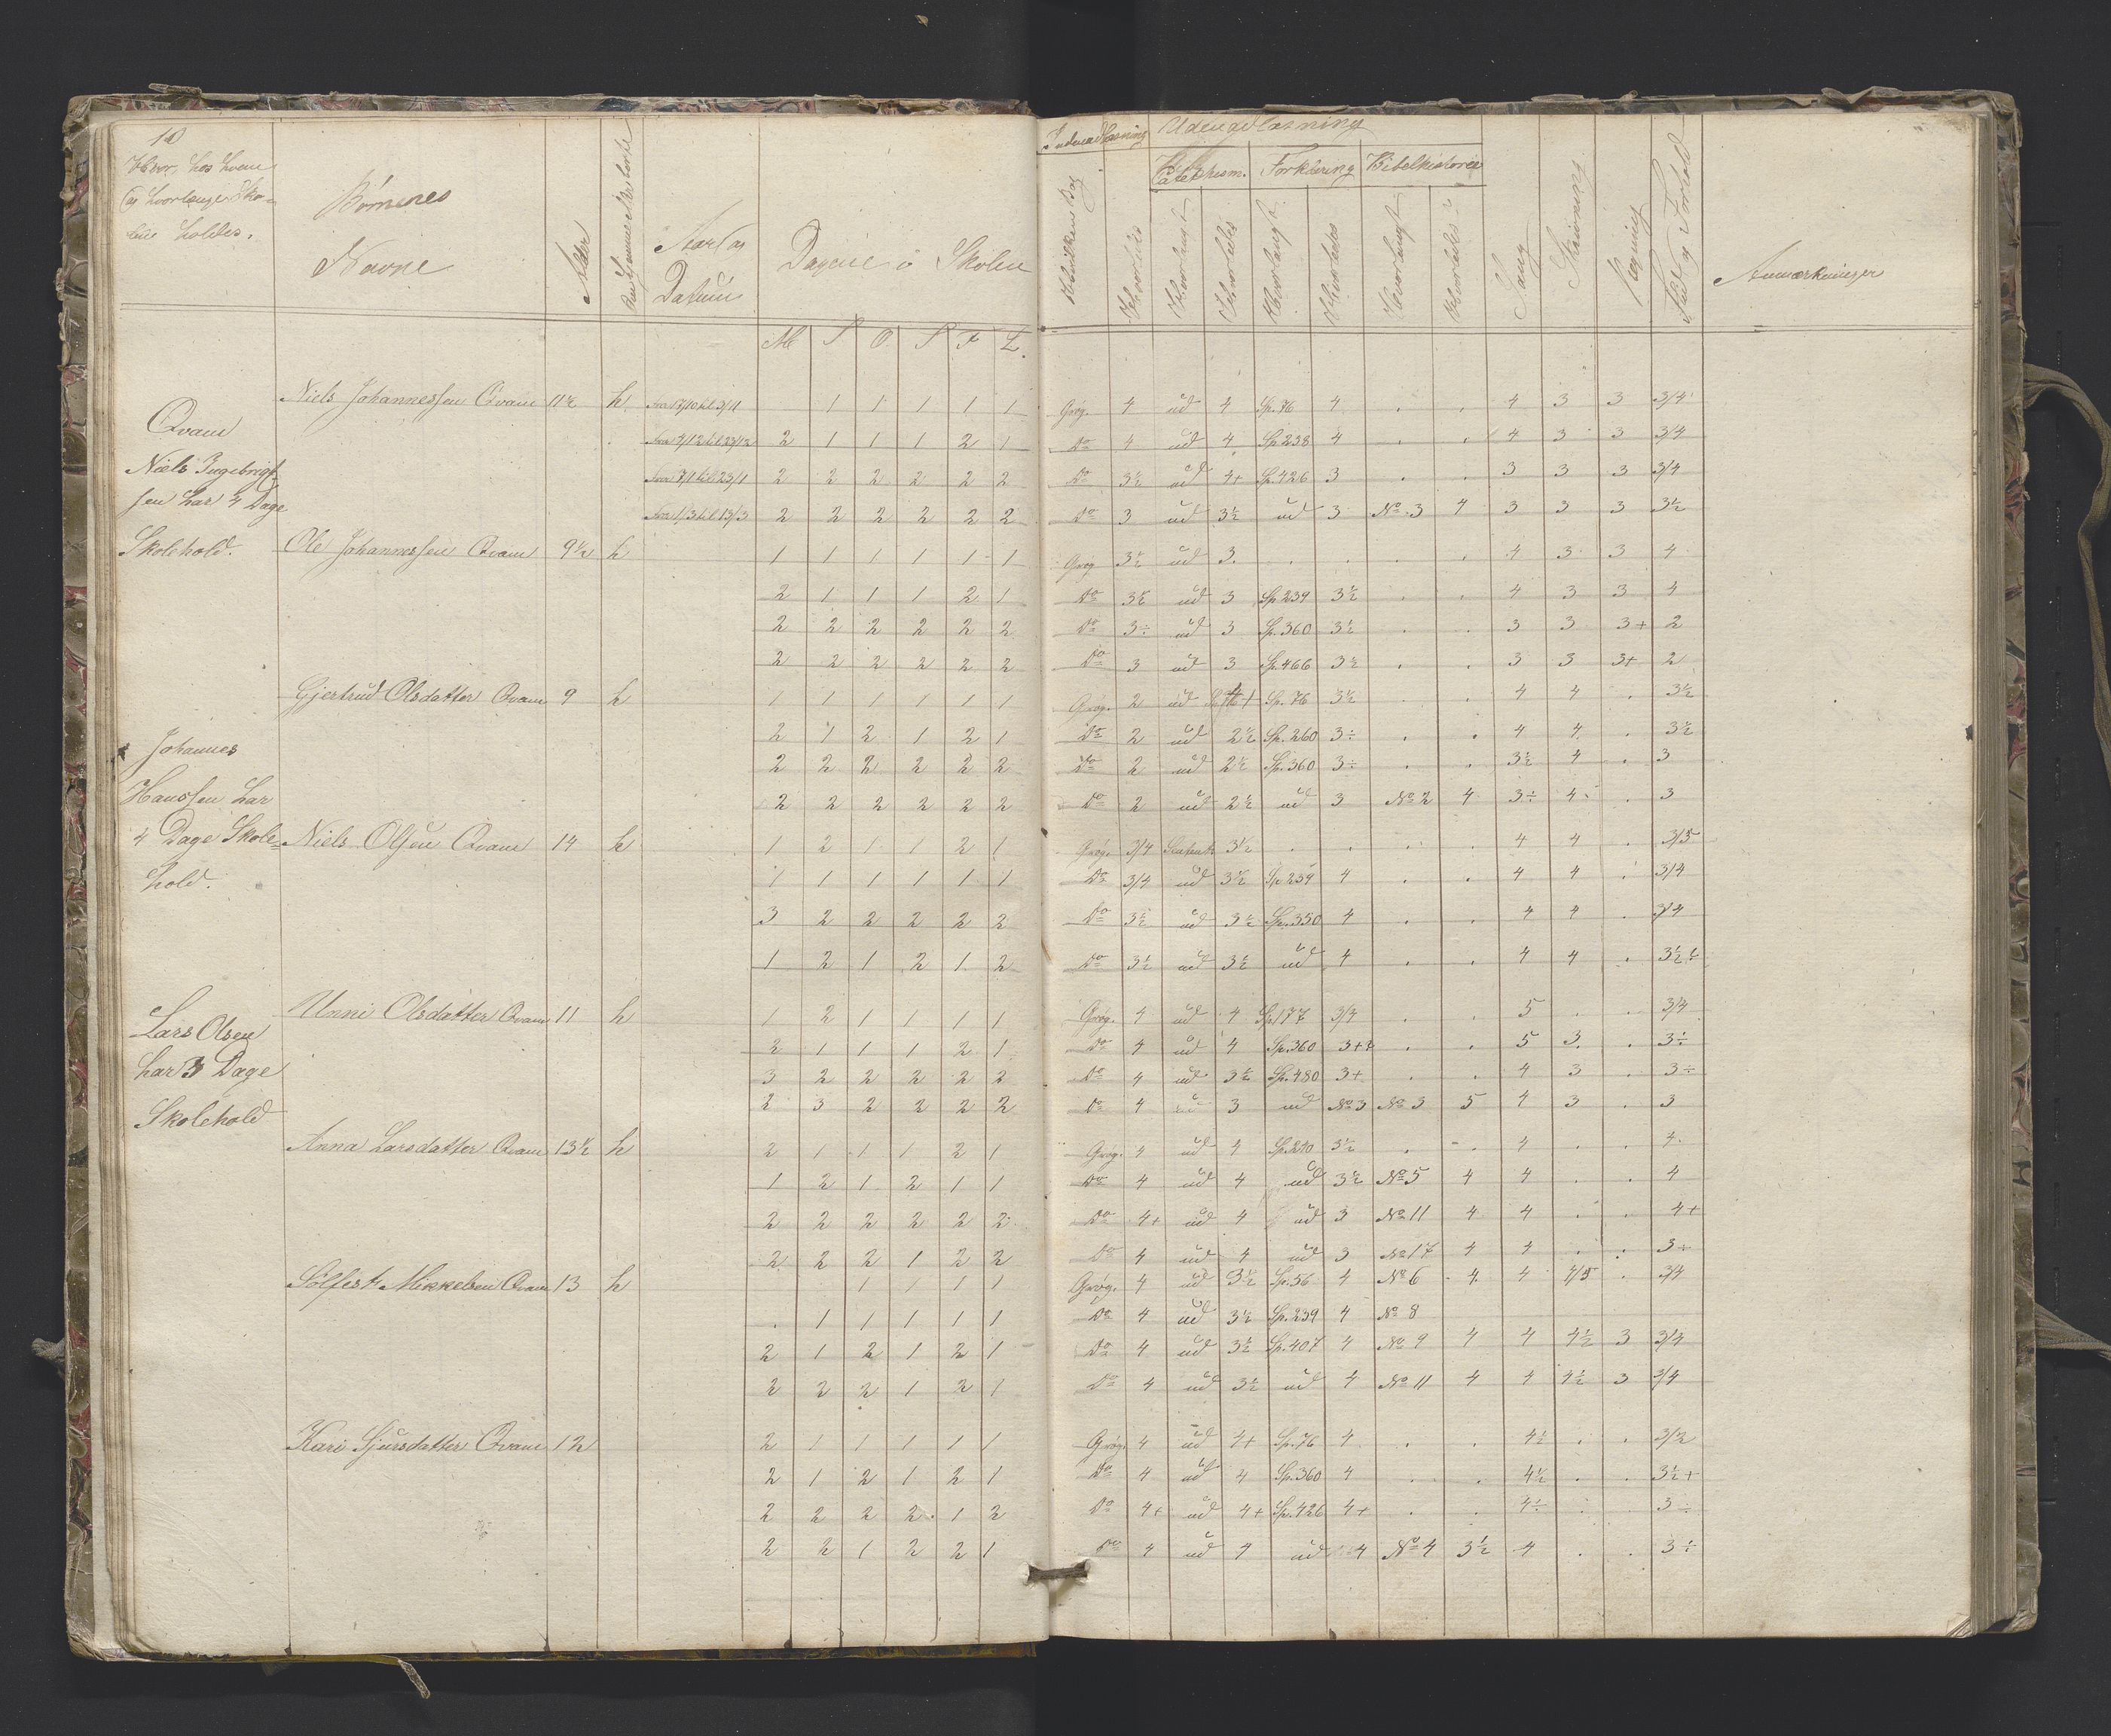 10
Hvor, hos hvem
og hvorlænge Sko-
len holdes.
Børnenes
Navne
Alder
Hjemme eller borte
Aar og
Datum
Dagene i Skolen
M T O T F L.
Indenadlæsning
Udenadlæsning
Catechism. Forklaring Bibelhistorie
Hvilken Bog
Hvorledes
Hvorlangt
Hvorledes
Hvorlangt
Hvorledes
Hvorlangt
Hvorledes
Sang
Skrivning
Regning
Flid og Forhold
Anmærkninger
Qvam
Niels Ingebrigt-
sen har 4 Dage
Skolehold.
Johannes
Hanssen har
4 Dage Skole-
hold.
Lars Olsen
har 3 Dage
Skolehold
Niels Johannessen Qvam 11½ h fra 17/10 til 3/11 1 1 1 1 1 Grøg. 4 ud 4 Sp. 76 4 . . 4 3 3 3/4
2 1 1 1 2 1 Do 4 ud 4 Sp. 238 4 . . 4 3 3 3/4
fra 7/1 til 23/1 2 2 2 2 2 2 Do 3½ ud 4+ Sp. 426 3 . . 3 3 3 3/4
fra 1/3 til 13/3 2 2 2 2 2 2 Do 3 ud 3½ ud 3 No. 3 4 3 3 3 3½
Ole Johannessen Qvam 9½ h 1 1 1 1 1 1 Grøg 3½ ud 3. . . . . 4 3 3 4
2 1 1 1 2 1 Do 3½ ud 3 Sp. 239 3½ . . 4 3 3 4
2 2 2 2 2 2 Do 3÷ ud 3 Sp. 360 3½ . . 3 3 3+ 2
2 2 2 2 2 2 Do 3 ud 3 Sp. 466 3½ . . 3 3 3+ 2
Gjertrud Olsdatter Qvam 9 h 1 1 1 1 1 1 Grøg. 2 ud Sp. 76 3½ . . 4 4 . 3½
2 1 2 1 2 1 Do 2 ud 2½ Sp. 260 3÷ . . 4 4 . 3½
2 2 2 2 2 2 Do 2 ud 2½ Sp. 360 3÷ . . 3½ 4 . 3
2 2 2 2 2 2 Do 2 ud 2½ ud 3 No 2 4 3÷ 4 . 3
Niels Olsen Qvam 14 h 1 2 1 1 2 1 Grøg. 3/4 3½ . . . . 4 4 . 3/5
1 1 1 1 1 1 Do 3/4 ud 3½ Sp 239 4 . . 4 4 . 3/4
3 2 2 2 2 2 Do 3½ ud 3½ Sp. 350 4 . . 4 4 . 3/4
1 2 1 2 1 2 Do 3½ ud 3½ ud 4 . . 4 4 . 3½÷
Unni Olsdatter Qvam 11 h 1 2 1 1 1 1 Grøg. 4 ud 4 Sp. 177 3/4 . . 5 . . 3/4
2 1 1 1 2 1 Do 4 ud 4 Sp. 360 3++ . . 5 3. . 3÷
3 2 2 2 2 2 Do 4 ud 3½ Sp. 480 3+ . . 4 3 . 3÷
2 3 2 2 2 2 Do 4 ud 3 ud No 3 No 3 5 4 3 . 3
Anna Larsdatter Qvam 13½ h 2 1 1 1 2 1 Grøg. 4 ud 4 Sp. 210 3½ . . 4 . . 4.
1 2 1 2 1 1 Do 4 ud 4 ud 3½ No 5 4 4 . . 4
2 2 2 2 2 2 Do 4+ ud 4 ud 3 No 11 4 4 . . 4+
2 2 2 1 2 2 Do 4 ud 4 ud 3 No 17 4 4 . . 3÷
Sølfest Mikkelsen Qvam 13 h 1 1 1 1 Grøg. 4 ud 3½ Sp. 56 4 No 6 4 4 4/5 . 3/4
. 1 1 1 1 1 Do 4 ud 3½ Sp. 239 4 No 8
2 1 2 1 2 1 Do 4 ud 3½ Sp. 407 4 No 9 4 4 4½ 3 3/4
2 2 2 1 2 1 Do 4 ud 3½ ud 4 No 11 4 4 4½ 3 3/4
Kari Sjursdatter Qvam 12 2 1 1 1 1 1 Grøg. 4 ud 4+ Sp. 76 4 . . 4½ . . 3/2
2 1 2 1 2 1 Do 4 ud 4 Sp. 360 4 . . 4½ . . 3½+
2 2 2 2 1 2 Do 4+ ud 4+ Sp. 426 4+ . . 4÷ . . 3÷
2 2 1 2 2 1 Do 4 ud 4 ud 4 No 4 3½ 4 . . 3÷